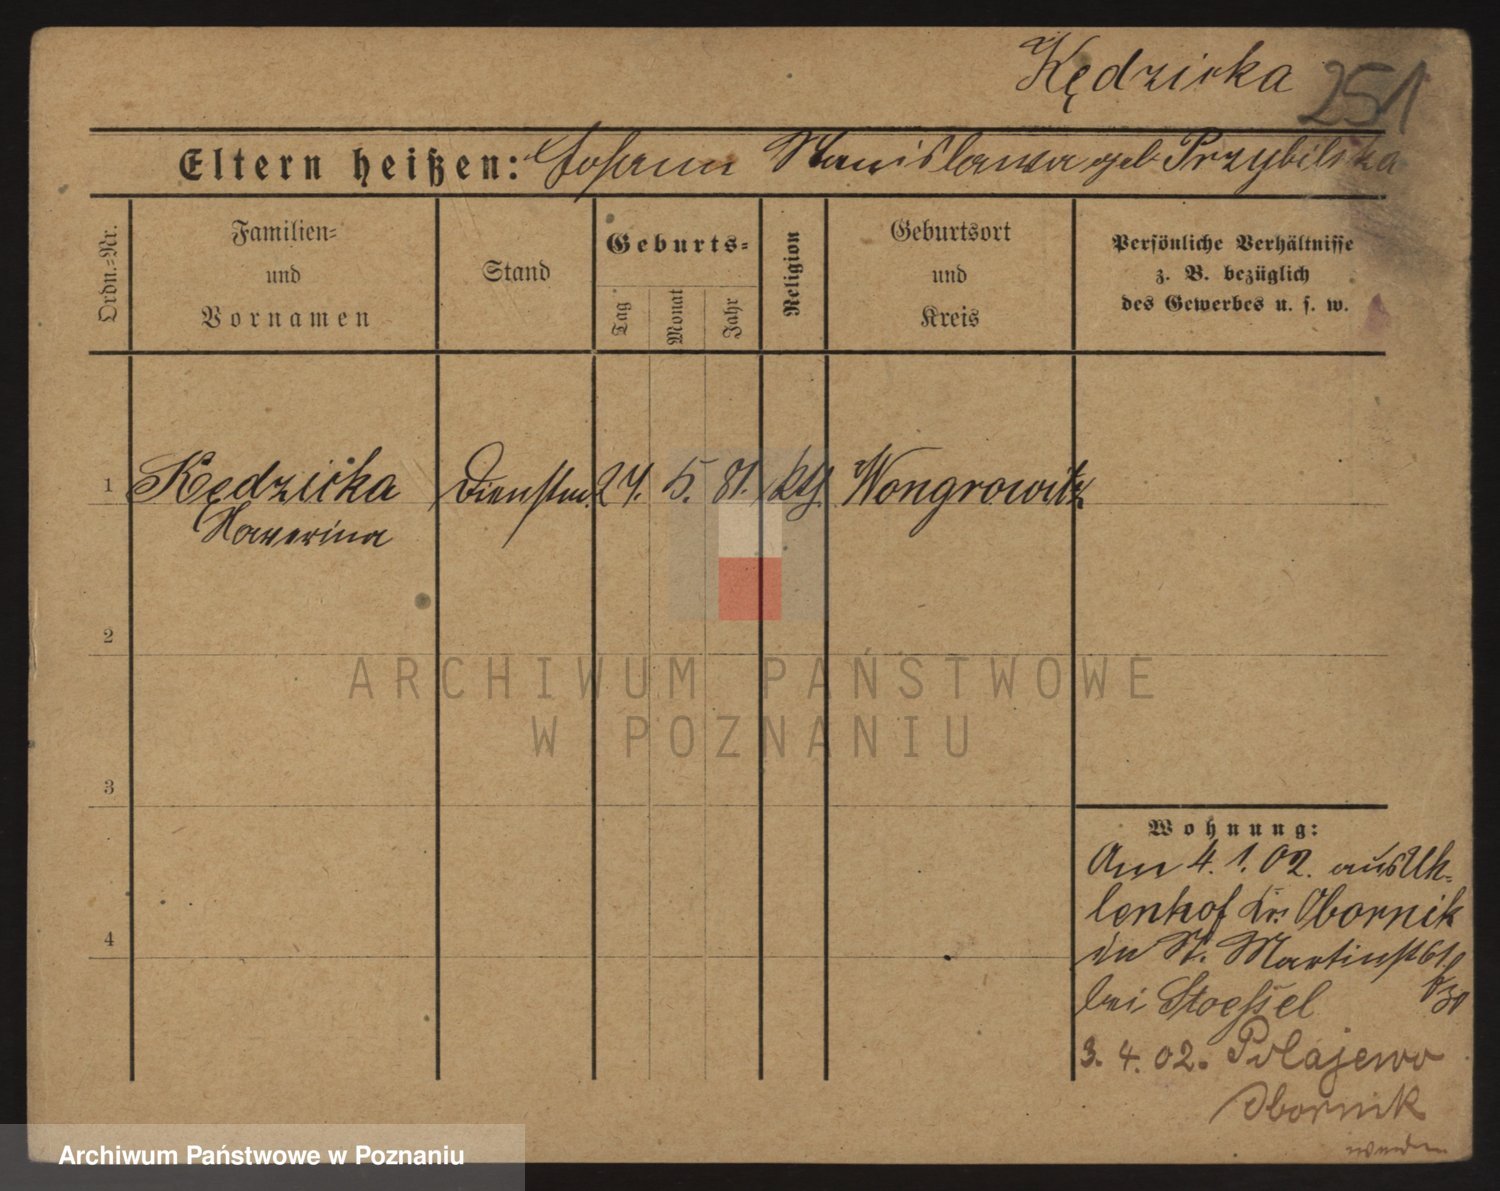 Kędzicka 251
Eltern heißen: Johann Stanislawa geb Przybilska
Ordn.=Nr.
Familien=
und
Vornamen
Stand
Geburts=
Tag
Monat
Jahr
Religion
Geburtsort
und
Kreis
Persönliche Verhältnisse
z. B. bezüglich
des Gewerbes u. s. w.
1 Kędzicka Dienstm. 24. 5. 81. kth. Wongrowitz
Xaverina
2
ARCHIWUM PAŃSTWOWE
W POZNANIU
3
4
Wohnung:
Am 4. 1. 02. aus Uh-
lenhof Kr. Obornik
in St. Martinst
bei Stoessel
3. 4. 02. Polajewo
Obornik
Archiwum Państwowe w Poznaniu